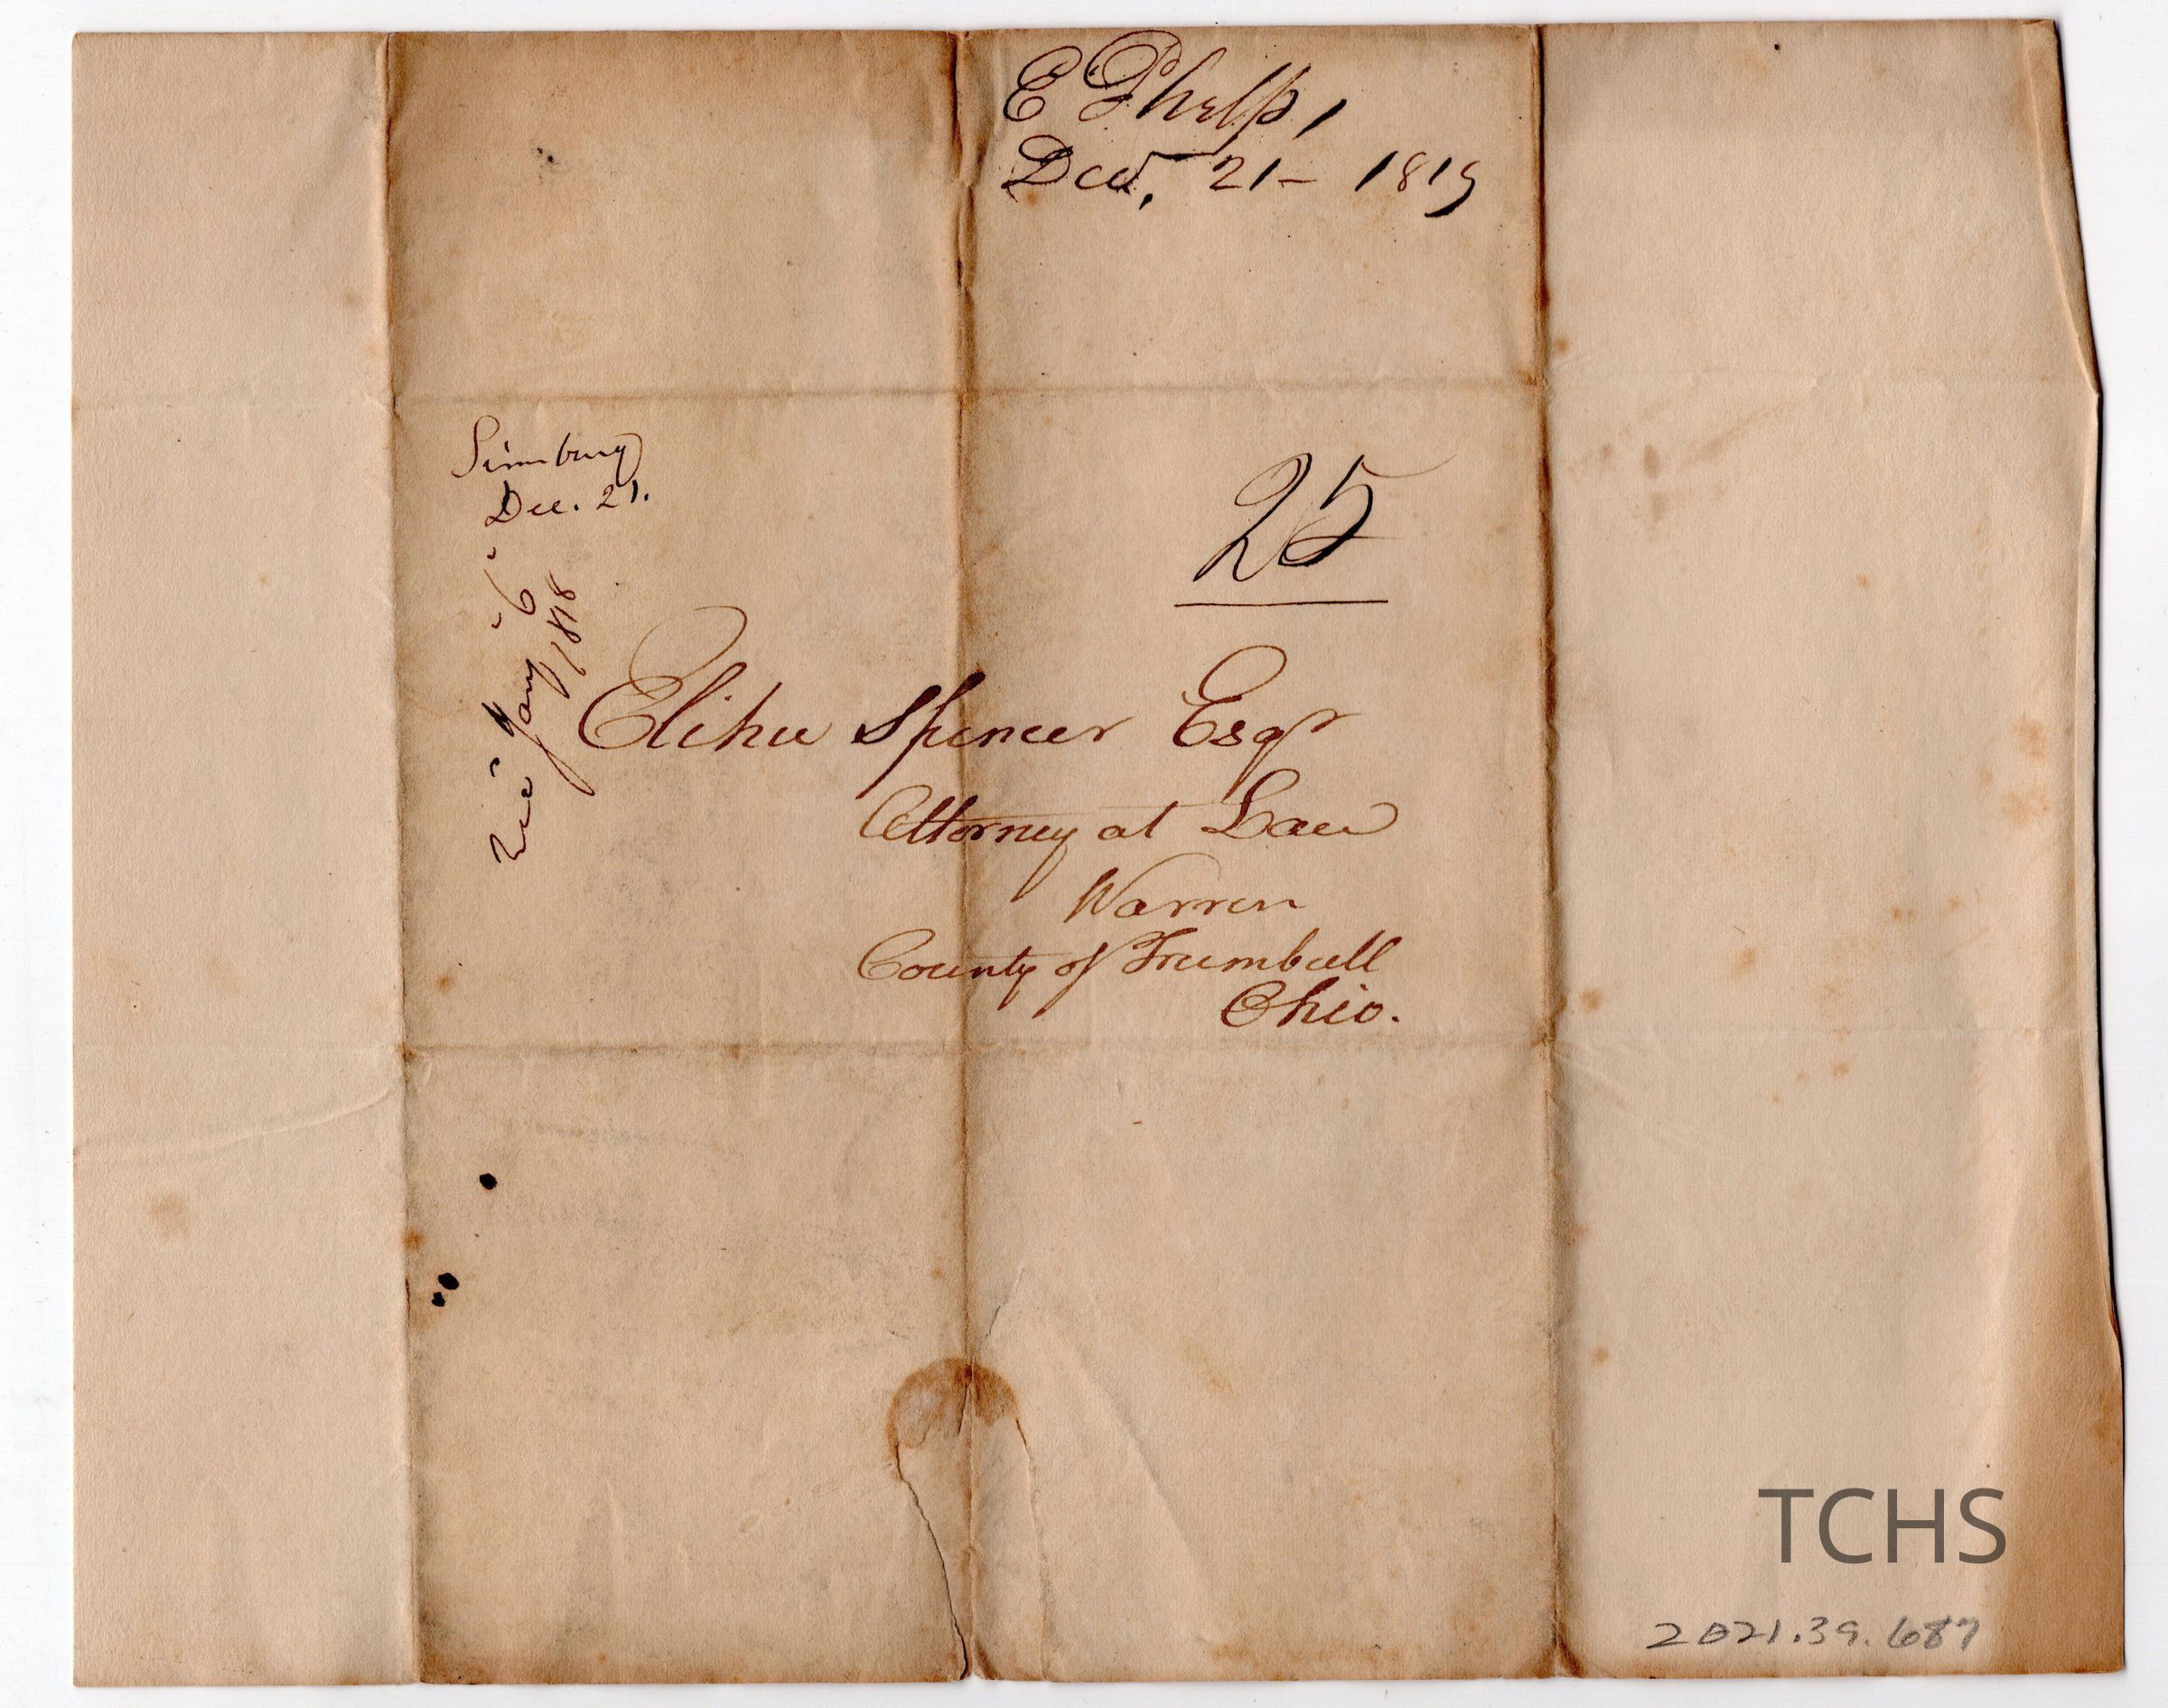 E Phelps,
Decr. 21 - 1819
Simsbury
Dec. 21.
25
Recd Jany 6
1818
Elihu Spencer Esqr
Attorney at Law
Warren
County of Trumbull
Ohio.
TCHS
2021.39.687